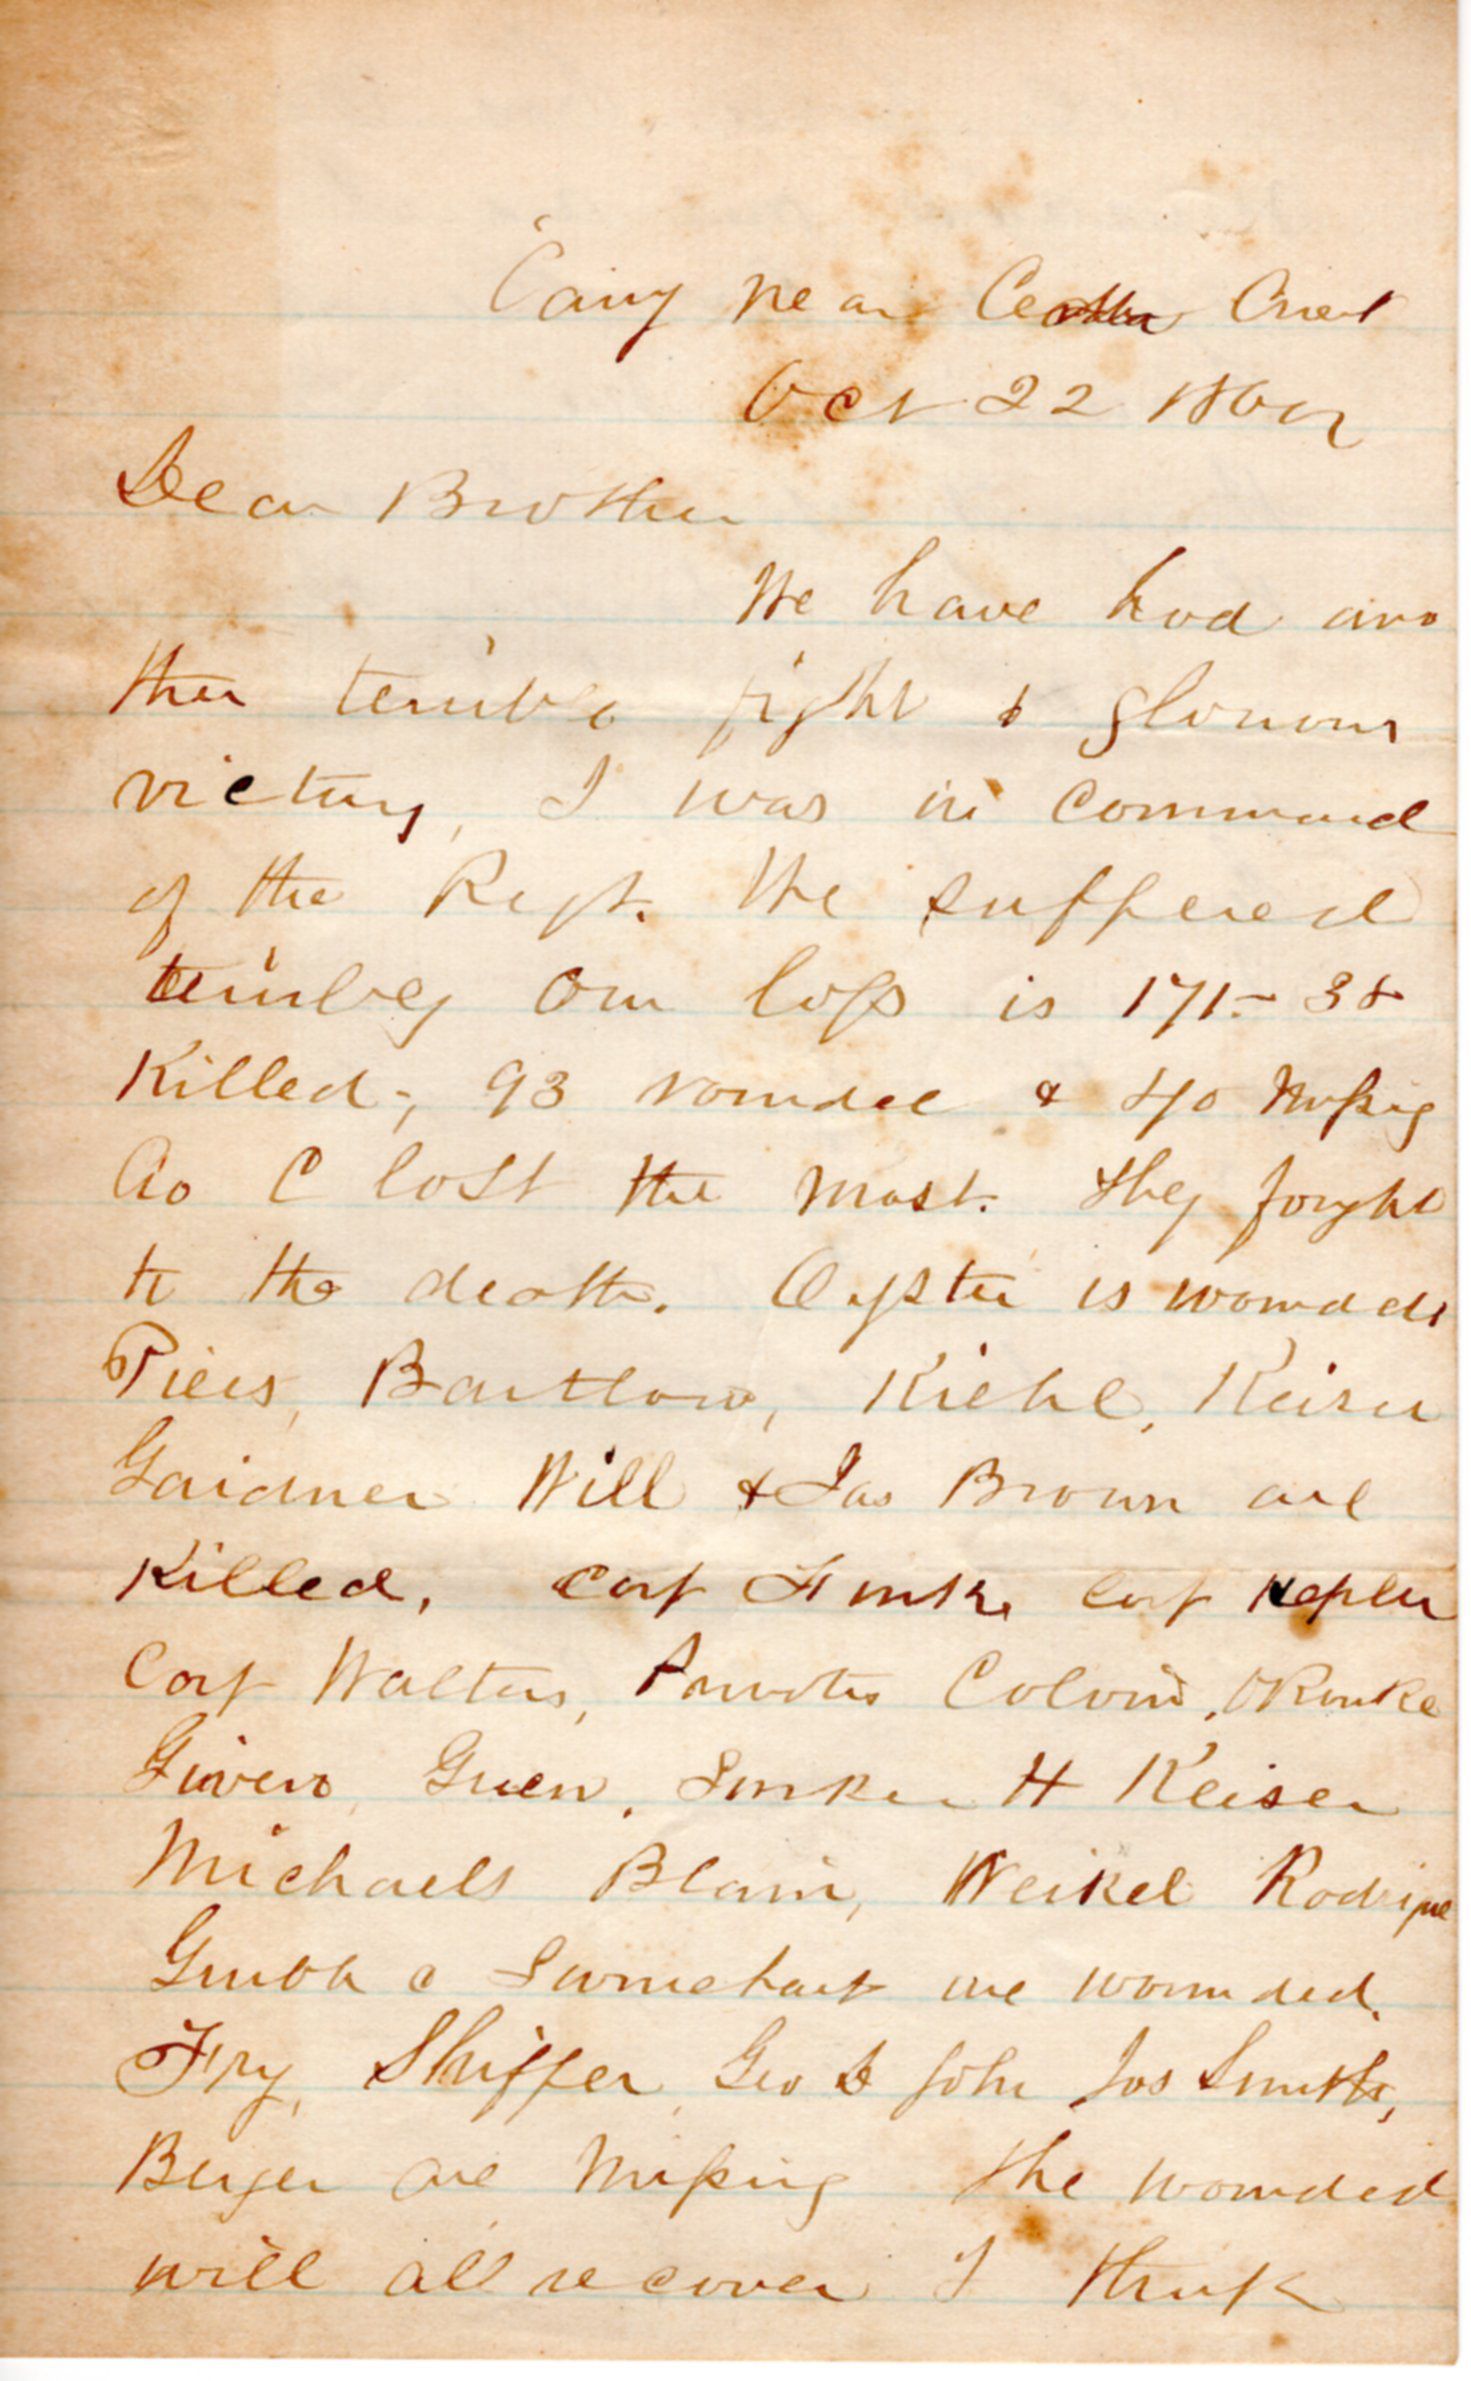 Camp near Cedar Creek
Oct 22 1864
Dear Brother
We have had ano
ther terrible fight & glorious
victory, I was in command
of the Regt. We suffered
terribly Our loss is 171- 38
Killed, 93 wounded & 40 Missing
Co C lost the most. They fought
to the death. Oyster is wounded
Piers, Bartlow, Kiehl, Keiser
Gardner Will & Jas Brown are
Killed, Corp Finck, Corp Kepler
Corp Walters, Privates Colvin, ORourke
Givens, Green, H Keiser
Michaels Blain, Weikel Rodrigue
Grubb & Swinehart are wounded.
Fry, Shiffer, Geo & John Jos Smith,
Berger are Missing The wounded
will all recover I think